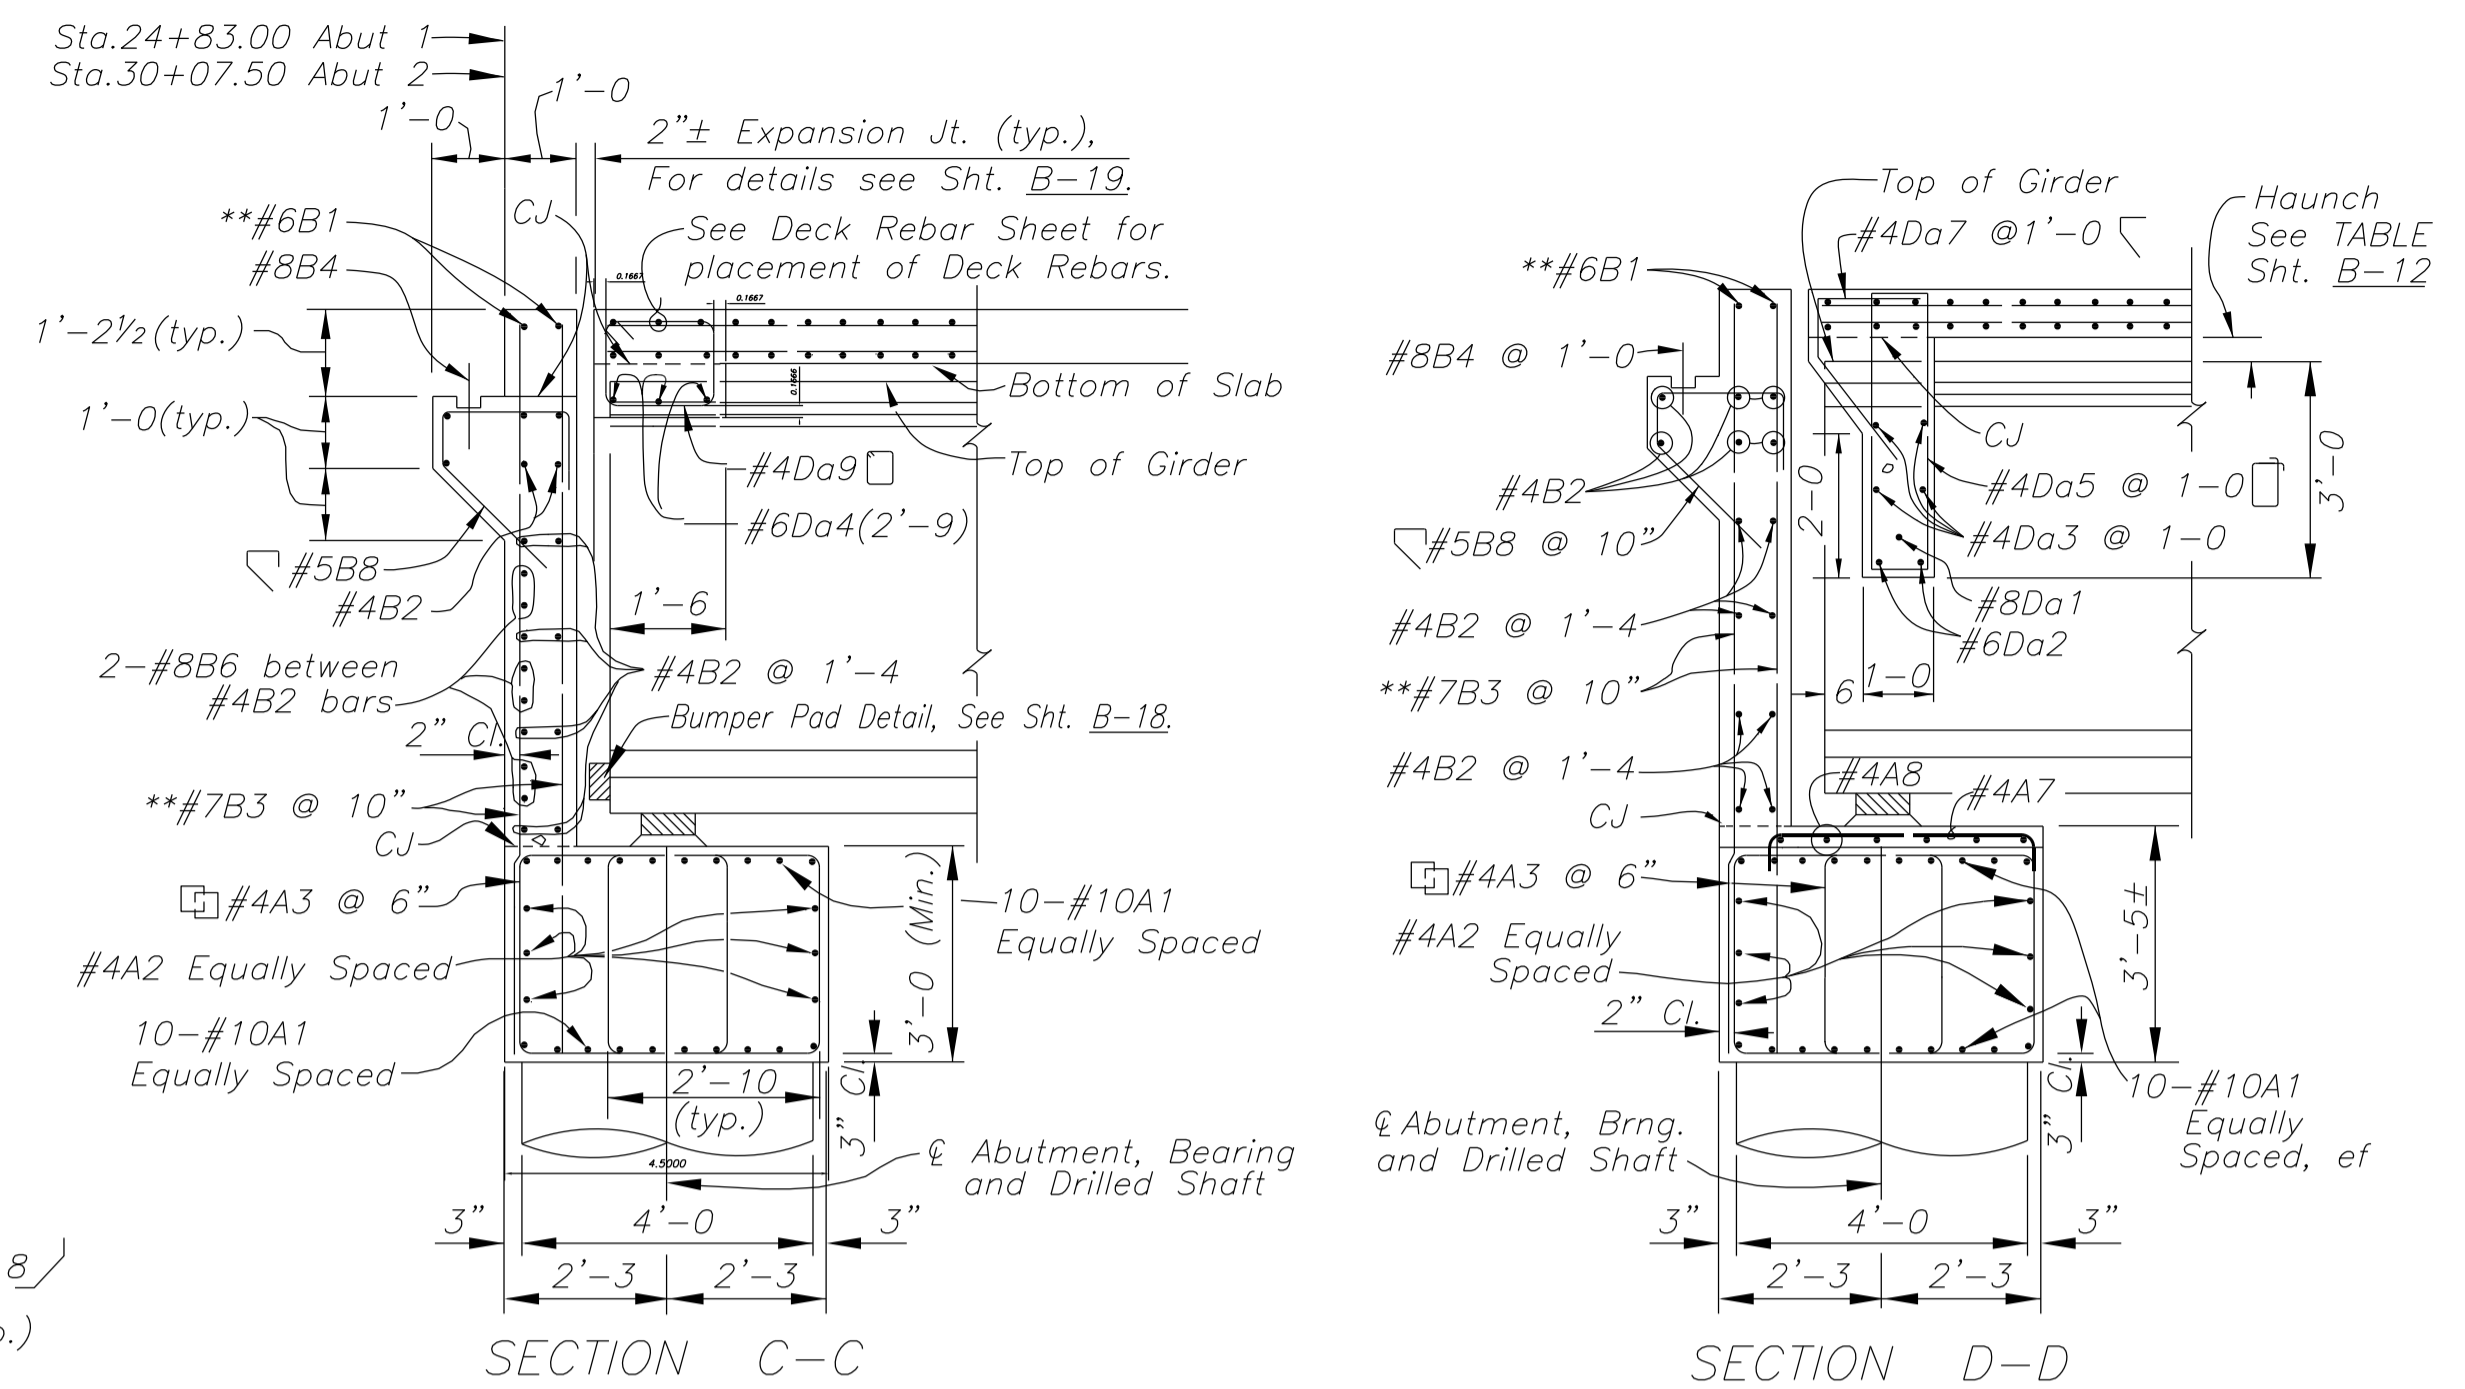 Sta.24+83.00 Abut 1
Sta.30+07.50 Abut 2
1'-0
1'-0
2"± Expansion Jt. (typ.),
For details see Sht. B-19.
**#6B1
CJ
#8B4
See Deck Rebar Sheet for
placement of Deck Rebars.
0.1667
0.1667
0.1666
1'-2½(typ.)
1'-0(typ.)
Bottom of Slab
Top of Girder
#4Da9
#6Da4(2'-9)
#5B8
#4B2
1'-6
2-#8B6 between
#4B2 bars
#4B2 @ 1'-4
Bumper Pad Detail, See Sht. B-18.
2" Cl.
**#7B3 @ 10"
CJ
#4A3 @ 6"
10-#10A1
Equally Spaced
3'-0 (Min.)
#4A2 Equally Spaced
10-#10A1
Equally Spaced
2'-10
(typ.)
3" Cl.
4.5000
℄ Abutment, Bearing
and Drilled Shaft
3"
4'-0
3"
2'-3
2'-3
SECTION C-C
8
.)
Top of Girder
#4Da7 @1'-0
Haunch
See TABLE
Sht. B-12
**#6B1
#8B4 @ 1'-0
CJ
#4B2
2-0
#4Da5 @ 1-0
3'-0
#5B8 @ 10"
#4Da3 @ 1-0
#8Da1
#4B2 @ 1'-4
#6Da2
**#7B3 @ 10"
6
1-0
#4B2 @ 1'-4
#4A8
#4A7
CJ
#4A3 @ 6"
#4A2 Equally
Spaced
3'-5±
2" Cl.
3" Cl.
10-#10A1
Equally
Spaced, ef
℄ Abutment, Brng.
and Drilled Shaft
3"
4'-0
3"
2'-3
2'-3
SECTION D-D